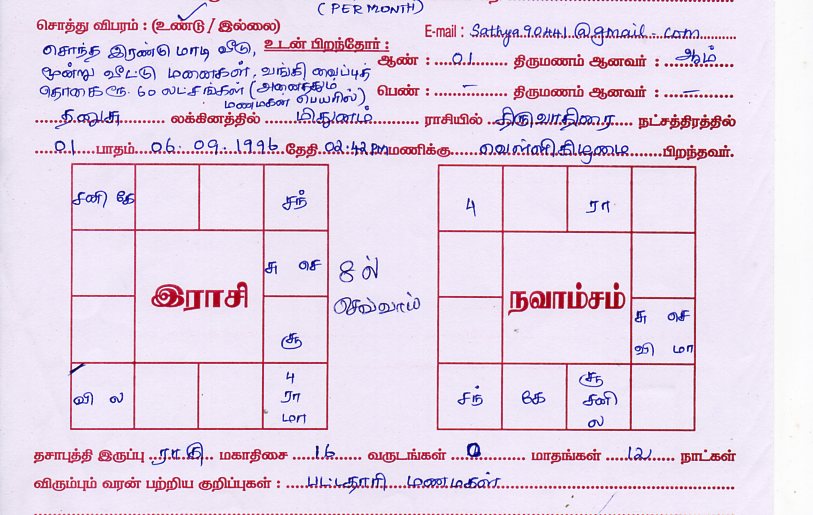 ( PER MONTH )
சொத்து விபரம் : (உண்டு / இல்லை)
E-mail : Sathya90441@gmail.com
சொந்த இரண்டு மாடி வீடு, உடன் பிறந்தோர் :
ஆண் : 01 திருமணம் ஆனவர் : ஆம்
மூன்று வீட்டு மனைகள், வங்கி வைப்புத்
தொகை ரூ. 60 லட்சங்கள் (அனைத்தும்
பெண் : – திருமணம் ஆனவர் : –
மணமகன் பெயரில்)
தனுசு லக்கினத்தில் மிதுனம் ராசியில் திருவாதிரை நட்சத்திரத்தில்
01 பாதம் 06.09.1996 தேதி 02:42 PM மணிக்கு வெள்ளிகிழமை பிறந்தவர்.
சனி கே சந்
சு செ
இராசி
சூ
வி ல
4
ரா
மா
8ல்
செவ்வாய்
4 ரா
நவாம்சம்
சு செ
வி மா
சந் கே
சூ
சனி
ல
தசாபுத்தி இருப்பு ராகு மகாதிசை 16 வருடங்கள் 0 மாதங்கள் 12 நாட்கள்
விரும்பும் வரன் பற்றிய குறிப்புகள் : பட்டதாரி மணமகள்